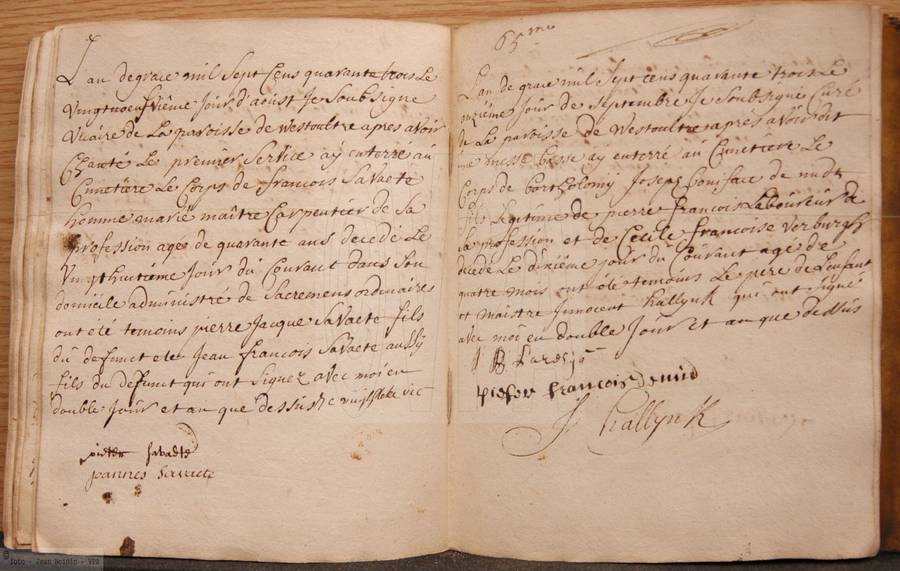 L'an de grace mil Sept Cens quarante trois Le
vingtneufvième Jour d'aoust Je Soubsigné
vicaire de La paroisse de Westoultre apres avoir
Chanté Le premier Service ay enterré au
Cimetière Le Corps de francois Savaete
homme marié maître Carpentier de Sa
profession agée de quarante ans decedé Le
vingthuitième Jour du Courant dans Son
domicile administré de Sacremens ordinaires
ont eté temoins pierre Jacque Savaete fils
du defunct et Jean francois Savaete aussy
fils du defunct qui ont signez avec moi en
double Jour et an que dessus
pieter Savaete
joannes Savaete
65me
L'an de grace mil Sept cens quarante trois Le
onzième Jour de Septembre Je Soubsigné Curé
de La paroisse de Westoultre apres avoir dit
une messe basse ay enterré au Cimetiere Le
Corps de bartholomy Joseph boniface de nudt
fils Legitime de pierre francois Laboureur de
Sa profession et de Cecile francoise verburgh
decedé Le dixième Jour du Courant agé de
quatre mois ont été temoins Le père de L'enfant
et maistre Innocent hallynk qui ont signé
avec moi en double Jour et an que dessus
pieter francois de nud
J hallynk
foto - Jean Boidin - VPR